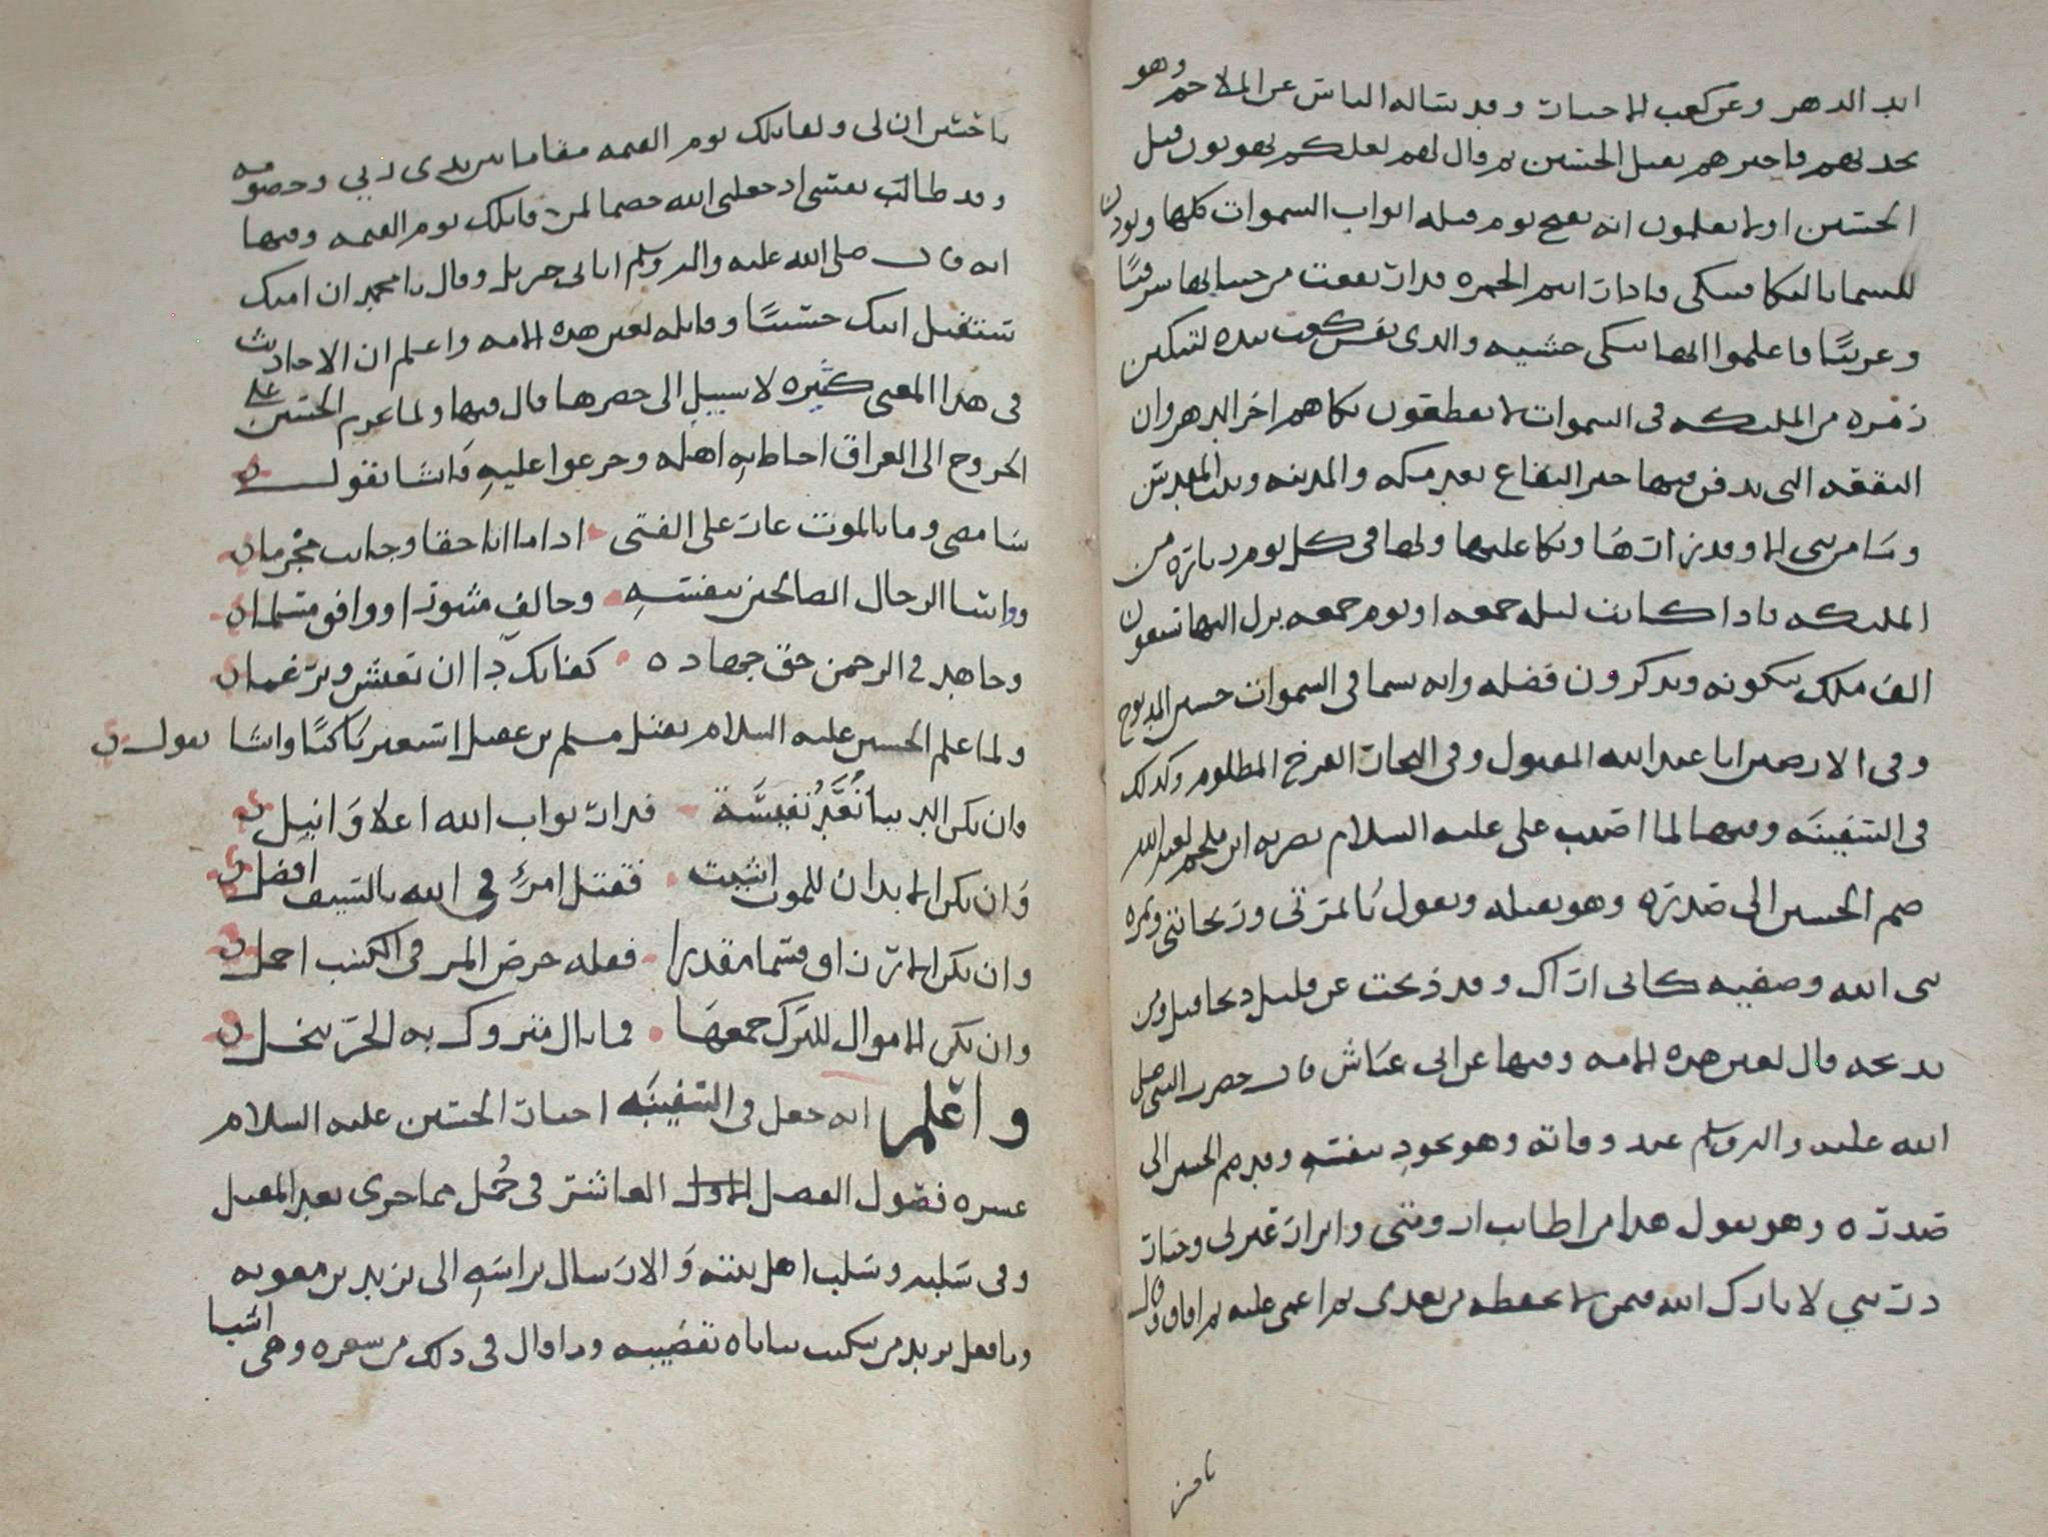 ابد الدهر وعن كعب الاحبار وقد ساله الناس عن الملاحم وهو
يحدثهم فاخبرهم بقتل الحسين ثم قال لهم لعلكم تهونون قتل
الحسين اولا تعلمون انه يفتح يوم قتله ابواب السموات كلها ويوذن
للسما بالبكا فتبكي فاذا رايتم الحمره قد ارتفعت من جنباتها شرقيًا
وغربيًا فاعلموا انها تبكي حسينه والذي نفس كعب بيده لتبكين
زمره من الملىكه في السموات لا يقطعون بكاهم اخر الدهر وان
البقعه التي يدفن فيها خير البقاع بعد مكه والمدينه وبيت المقدس
وما من نبي الا وقد زارها وبكا عليها ولها في كل يوم زياره من
الملىكه فاذا كانت ليله جمعه او يوم جمعه نزل اليها تسعون
الف ملك يبكونه ويذكرون فضله وانه يسما في السموات حسين المذبوح
وفي الارضين ابا عبد الله المقتول وفي البحار الفرخ المظلوم وكذلك
في السفينه وفيها لما اصيب علي عليه السلام بضربه ابن ملجم لعنه الله
ضم الحسين الى صدره وهو يقبله ويقول يا ثمرتي وريحانتي وثمره
نبي الله وصفيه كاني اراك وقد ذبحت عن قليل ذبحا قيل ومن
يذبحه قال لعين هذه الامه وفيها عن ابن عباس قال حضرت النبي صلى
الله عليه واله وسلم عند وفاته وهو يجود بنفسه وقد ضم الحسين الى
صدره وهو يقول هذا من اطايب ارومتي وابرار عترتي وخيار
ذريتي لا بارك الله فيمن لا يحفظه من بعدي ثم اغمي عليه ثم افاق وقال
يا حسين
يا حسين ان لي ولقاتلك يوم القيمه مقاما بين يدي ربي وخصومه
وقد طابت نفسي اذ جعلني الله خصما لمن قاتلك يوم القيمه وفيها
انه قال صلى الله عليه واله وسلم اتاني جبريل وقال يا محمد ان امتك
ستقتل ابنك حسينًا وقاتله لعين هذه الامه واعلم ان الاحاديث
في هذا المعنى كثيره لا سبيل الى حصرها قال فيها ولما عزم الحسين علم
الخروج الى العراق احاط به اهله وجزعوا عليه فانشا يقول
سامضي وما بالموت عار على الفتى اذا ما انا حقا وجانب مجرما
وواسا الرجال الصالحين بنفسه وخالف مثبورا ووافق مسلما
وجاهد في الرحمن حق جهاده كفا بك ذا ان تعش وترغما
ولما علم الحسين عليه السلام بقتل مسلم بن عقيل استعبر باكيًا وانشا يقول
وان تكن الدنيا تُعَدُّ نفيسَة فدار ثواب الله اعلا وَانبل
وَان تكن الابدان للموت انشيت فقتل امرئٍ في الله بالسيف افضل
وان تكن الارزاق قسما مقدرا فقله حرص المر في الكسب اجمل
وان تكن الاموال للترك جمعها فما بال متروك به الحرّ يبخل
واعلم انه جعل في السفينه اخبار الحسين عليه السلام
عشره فصول الفصل الاول العاشر في جُمل مما جرى بعد المقتل
وفي سَلبه وسَلب اهل بيته وَالارسال براسَه الى يزيد بن معويه
وما فعل يزيد من نكت ثناياه بقضيبه وما قال في ذلك من شعره وهي اشيا